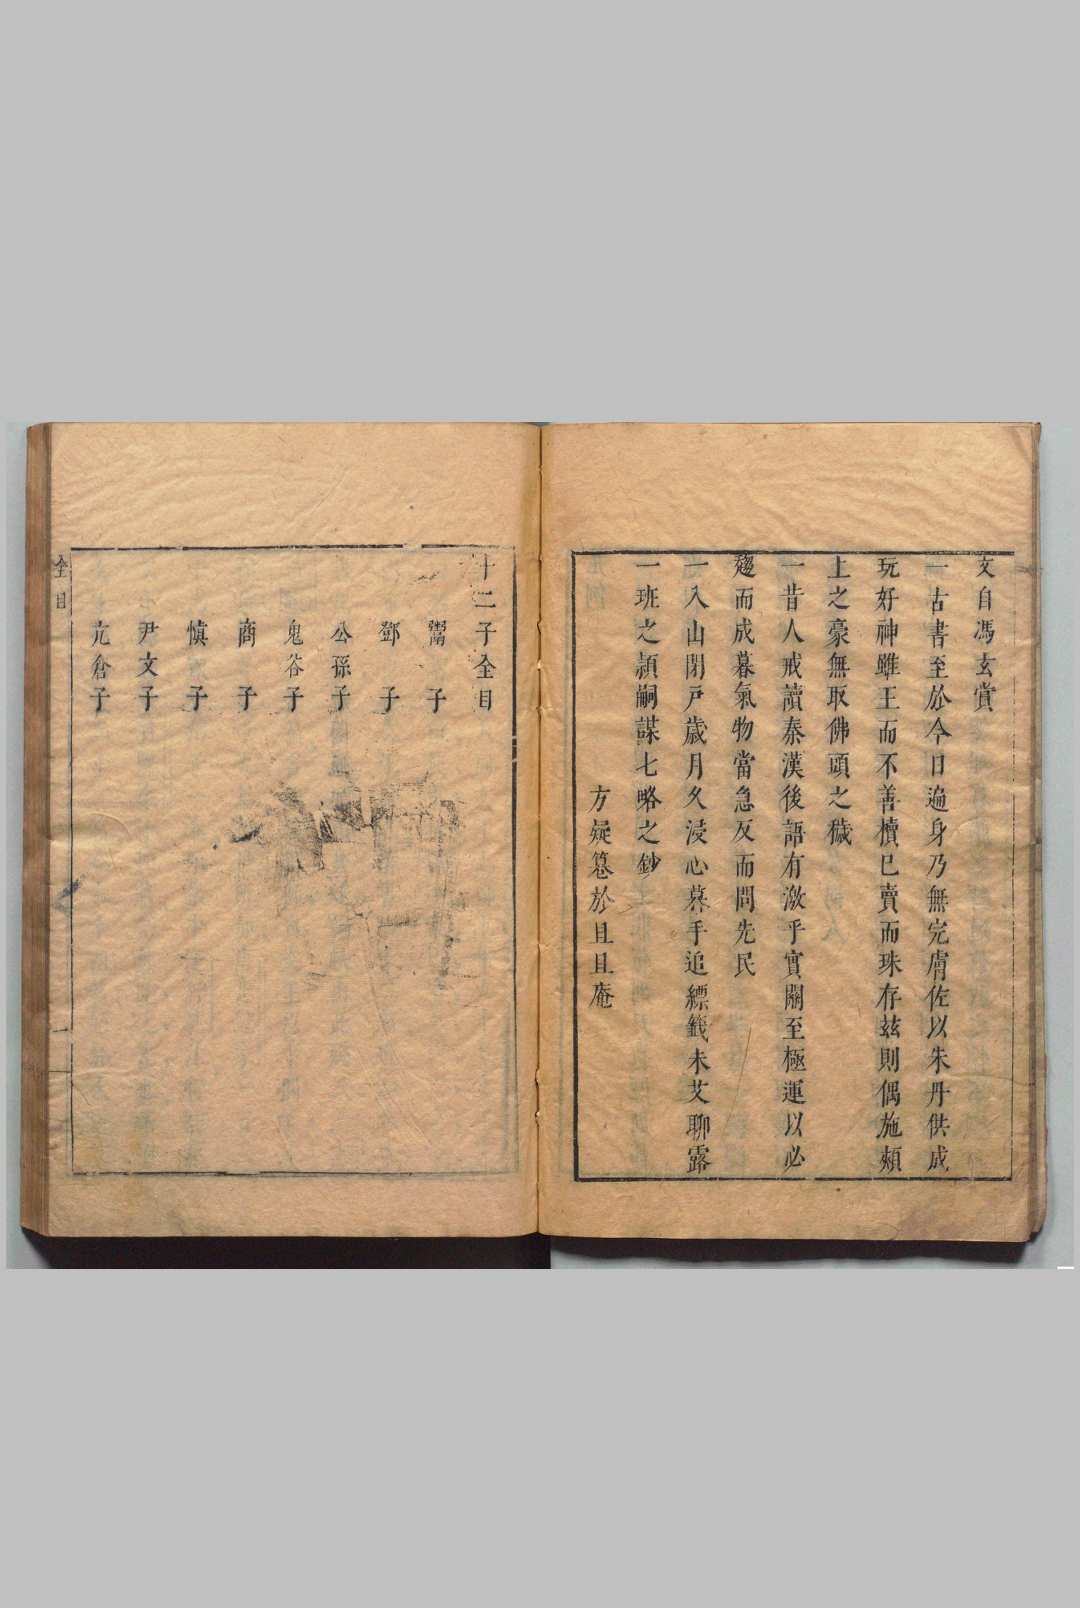 文自馮玄賞
一古書至於今日遍身乃無完膚佐以朱丹供成
玩好神雖王而不善櫝已賣而珠存兹則偶施頰
上之豪無取佛頭之穢
一昔人戒讀秦漢後語有激乎實關至極運以必
趨而成暮氣物當急反而問先民
一入山閉戸歲月久浸心暮手追縹籤未艾聊露
一班之頴嗣謀七略之鈔
方疑篹於且且庵
十二子全目
鬻子
鄧子
公孫子
鬼谷子
商子
慎子
尹文子
亢倉子
全目
一